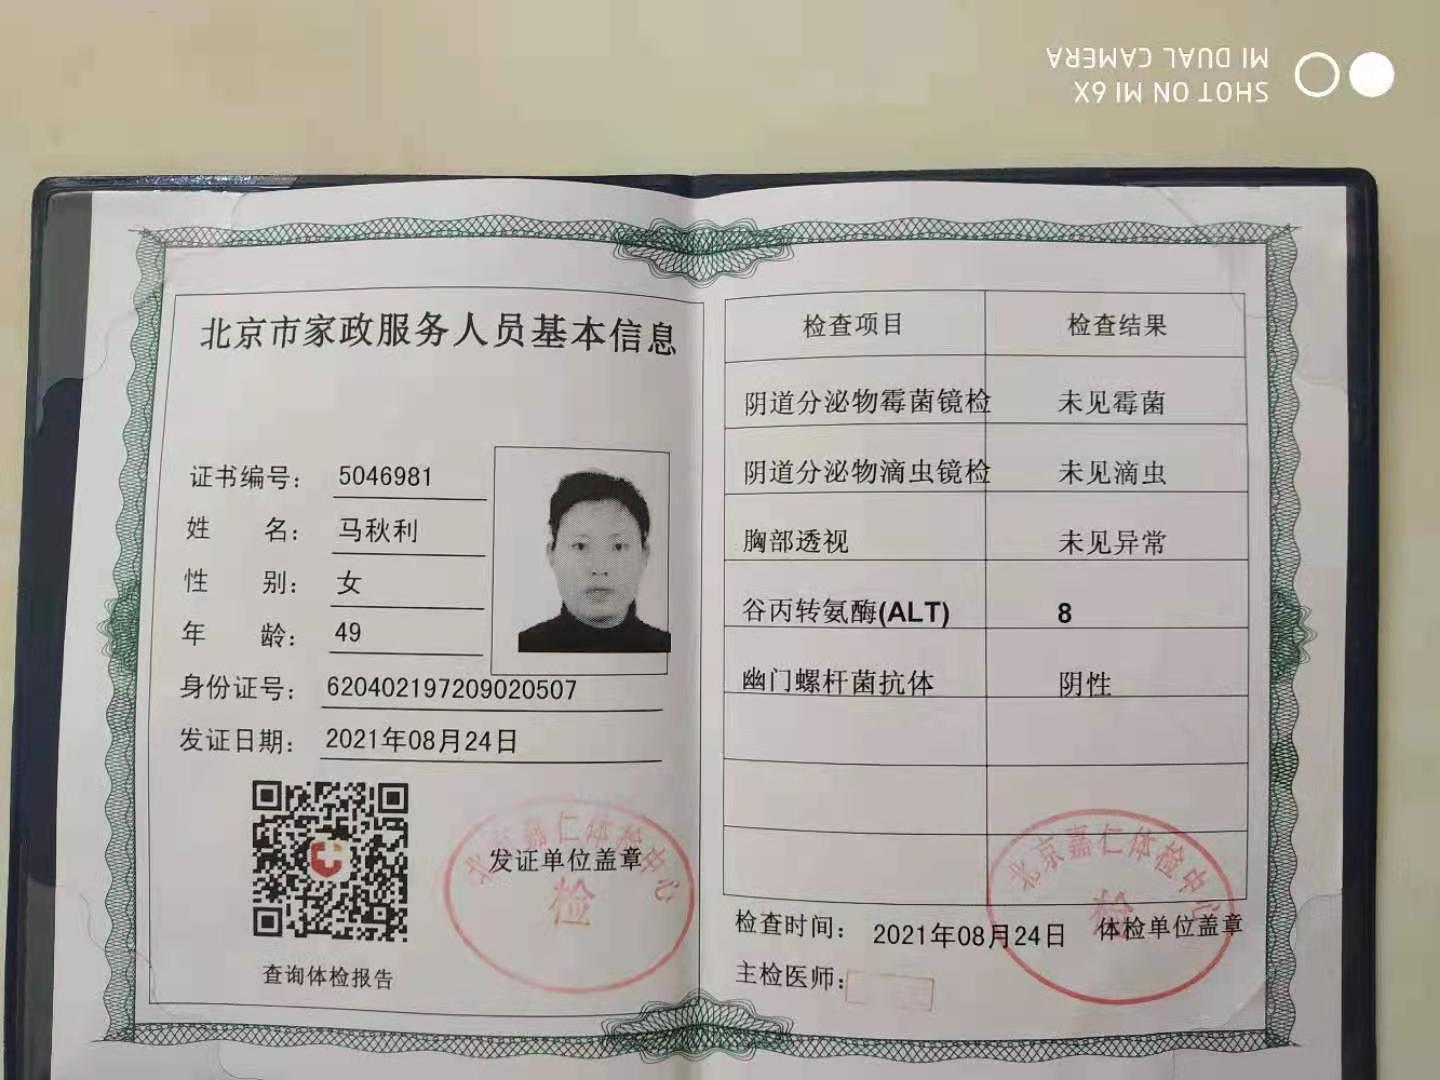 SHOT ON MI 6X
MI DUAL CAMERA
北京市家政服务人员基本信息
证书编号： 5046981
姓 名： 马秋利
性 别： 女
年 龄： 49
身份证号： 620402197209020507
发证日期： 2021年08月24日
北京嘉仁体检中心
发证单位盖章
检
查询体检报告
检查项目 检查结果
阴道分泌物霉菌镜检 未见霉菌
阴道分泌物滴虫镜检 未见滴虫
胸部透视 未见异常
谷丙转氨酶(ALT) 8
幽门螺杆菌抗体 阴性
北京嘉仁体检中心
检
检查时间： 2021年08月24日 体检单位盖章
主检医师：